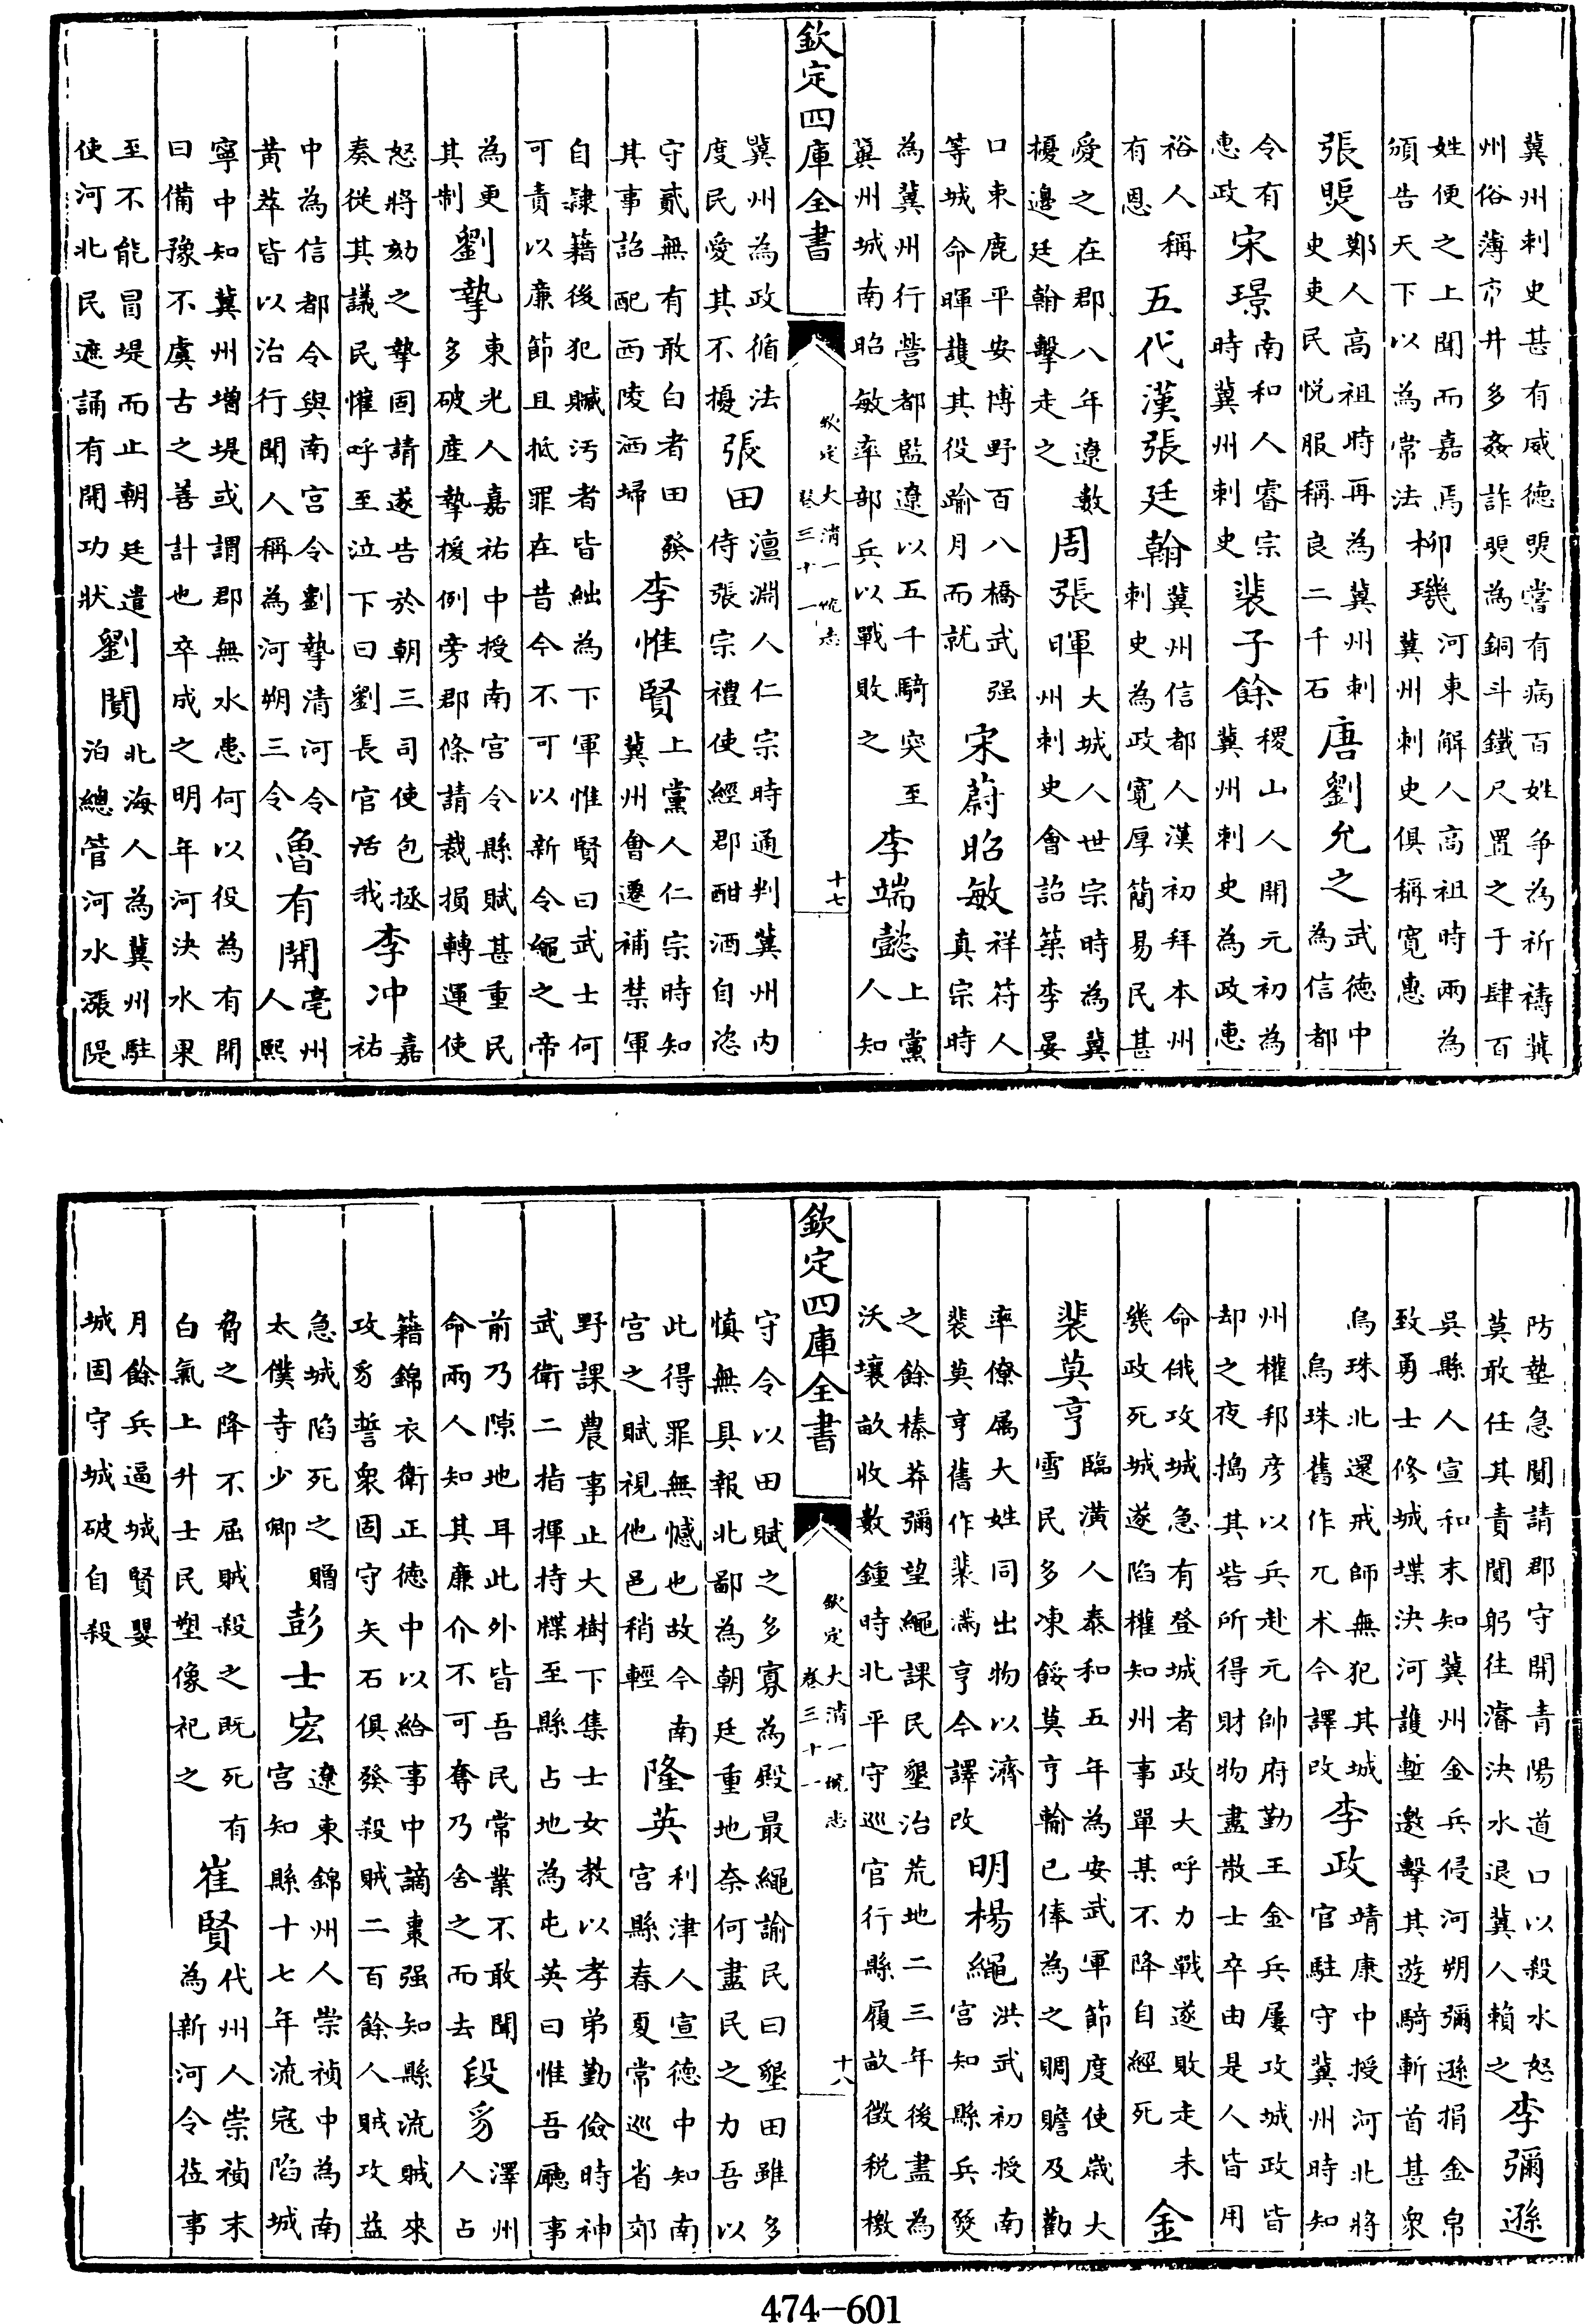 冀州刺史甚有威德煚嘗有病百姓争為祈禱冀
州俗薄市井多姦詐煚為銅斗鐵尺置之于肆百
姓便之上聞而嘉焉
頒告天下以為常法
柳璣
河東解人高祖時兩為
冀州刺史俱稱寛惠
張煚
鄭人高祖時再為冀州刺
史吏民悦服稱良二千石
唐劉允之
武德中
為信都
令有
惠政
宋璟
南和人睿宗
時冀州刺史
裴子餘
稷山人開元初為
冀州刺史為政惠
裕人稱
有恩
五代漢張廷翰
冀州信都人漢初拜本州
刺史為政寛厚簡易民甚
愛之在郡八年遼數
擾邊廷翰擊走之
周張暉
大城人世宗時為冀
州刺史會詔築李晏
口束鹿平安博野百八橋武强
等城命暉護其役踰月而就
宋蔚昭敏
祥符人
真宗時
為冀州行營都監遼以五千騎突至
冀州城南昭敏率部兵以戰敗之
李端懿
上黨
人知
欽定四庫全書
欽定大清一統志
卷三十一
十七
冀州為政循法
度民愛其不擾
張田
澶淵人仁宗時通判冀州内
侍張宗禮使經郡酣酒自恣
守貳無有敢白者田發
其事詔配西陵洒埽
李惟賢
上黨人仁宗時知
冀州會遷補禁軍
自隷籍後犯贓汚者皆絀為下軍惟賢曰武士何
可責以廉節且抵罪在昔今不可以新令繩之帝
為更
其制
劉摯
東光人嘉祐中授南宫令縣賦甚重民
多破産摯援例旁郡條請裁損轉運使
怒將劾之摯固請遂告於朝三司使包拯
奏從其議民懽呼至泣下曰劉長官活我
李冲
嘉
祐
中為信都令與南宫令劉摯清河令
黄莘皆以治行聞人稱為河朔三令
魯有開
亳州
人熙
寧中知冀州增堤或謂郡無水患何以役為有開
曰備豫不虞古之善計也卒成之明年河決水果
至不能冒堤而止朝廷遣
使河北民遮誦有開功狀
劉閴
北海人為冀州駐
泊總管河水漲隄
防墊急閴請郡守開青陽道口以殺水怒
莫敢任其責閴躬往濬決水退冀人賴之
李彌遜
吳縣人宣和末知冀州金兵侵河朔彌遜捐金帛
致勇士修城堞決河護塹邀擊其遊騎斬首甚衆
烏珠北還戒師無犯其城
烏珠舊作兀术今譯改
李政
靖康中授河北將
官駐守冀州時知
州權邦彦以兵赴元帥府勤王金兵屢攻城政皆
却之夜搗其砦所得財物盡散士卒由是人皆用
命俄攻城急有登城者政大呼力戰遂敗走未
幾政死城遂陷權知州事單某不降自經死
金
裴莫亨
臨潢人泰和五年為安武軍節度使歲大
雪民多凍餒莫亨輸已俸為之賙贍及勸
率僚属大姓同出物以濟
裴莫亨舊作裴滿亨今譯改
明楊繩
洪武初授南
宫知縣兵燹
之餘榛莽彌望繩課民墾治荒地二三年後盡為
沃壤畝收數鍾時北平守巡官行縣履畝徵税檄
欽定四庫全書
欽定大清一統志
卷三十一
十八
守令以田賦之多寡為殿最繩諭民曰墾田雖多
慎無具報北鄙為朝廷重地奈何盡民之力吾以
此得罪無憾也故今南
宫之賦視他邑稍輕
隆英
利津人宣德中知南
宫縣春夏常巡省郊
野課農事止大樹下集士女教以孝弟勤儉時神
武衛二指揮持牒至縣占地為屯英曰惟吾廳事
前乃隙地耳此外皆吾民常業不敢聞
命兩人知其廉介不可奪乃舍之而去
段豸
澤州
人占
籍錦衣衛正德中以給事中謫棗强知縣流賊來
攻豸誓衆固守矢石俱發殺賊二百餘人賊攻益
急城陷死之贈
太僕寺少卿
彭士宏
遼東錦州人崇禎中為南
宫知縣十七年流寇陷城
脅之降不屈賊殺之既死有
白氣上升士民塑像祀之
崔賢
代州人崇禎末
為新河令莅事
月餘兵逼城賢嬰
城固守城破自殺
474-601